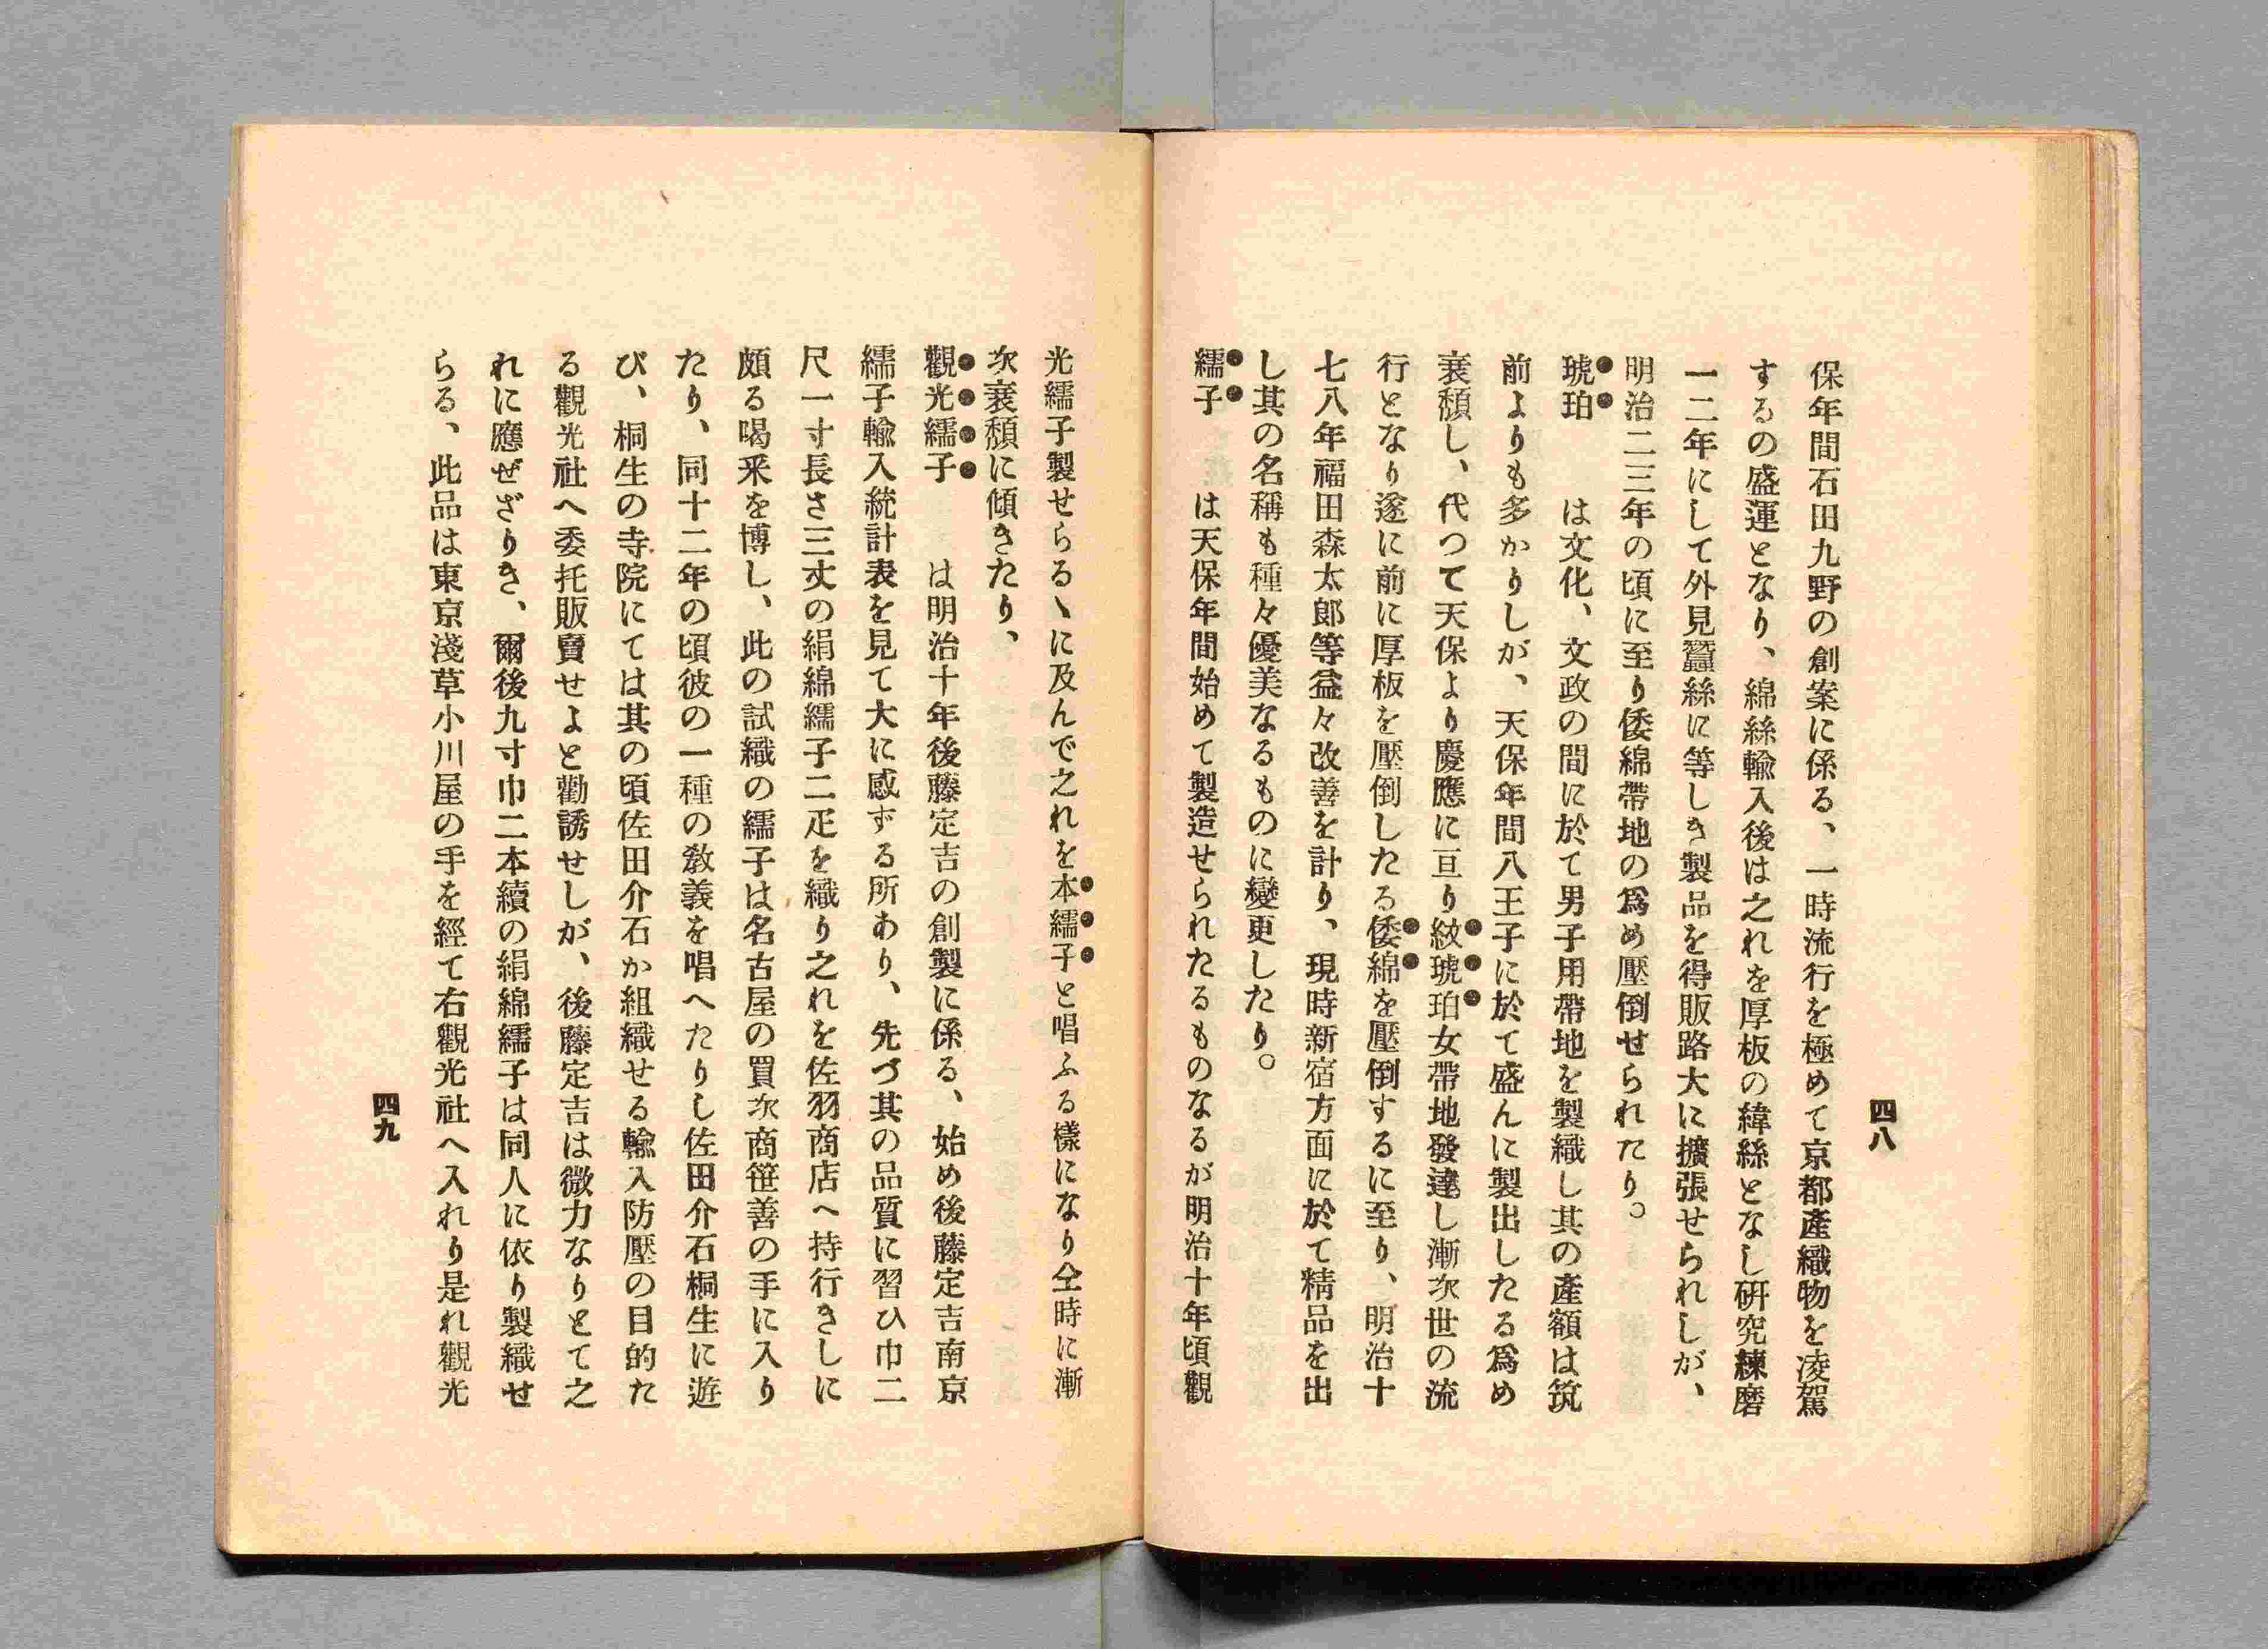 四八
保年間石田九野の創案に係る、一時流行を極めて京都產織物を凌駕
するの盛運となり、綿絲輸入後は之れを厚板の緯絲となし硏究練磨
一二年にして外見蠶絲に等しき製品を得販路大に擴張せられしが、
明治二三年の頃に至り倭綿帶地の爲め壓倒せられたり。
琥珀　　は文化、文政の間に於て男子用帶地を製織し其の產額は筑
前よりも多かりしが、天保年間八王子に於て盛んに製出したる爲め
衰頽し、代つて天保より慶應に亘り紋琥珀女帶地發達し漸次世の流
行となり遂に前に厚板を壓倒したる倭綿を壓倒するに至り、明治十
七八年福田森太郎等益々改善を計り、現時新宿方面に於て精品を出
し其の名稱も種々優美なるものに變更したり。
繻子　　は天保年間始めて製造せられたるものなるが明治十年頃觀
光繻子製せらるゝに及んで之れを本繻子と唱ふる樣になり仝時に漸
次衰頽に傾きたり、
觀光繻子　　は明治十年後藤定吉の創製に係る、始め後藤定吉南京
繻子輸入統計表を見て大に感ずる所あり、先づ其の品質に習ひ巾二
尺一寸長さ三丈の絹綿繻子二疋を織り之れを佐羽商店へ持行きしに
頗る喝釆を博し、此の試織の繻子は名古屋の買次商笹善の手に入り
たり、同十二年の頃彼の一種の敎義を唱へたりし佐田介石桐生に遊
び、桐生の寺院にては其の頃佐田介石か組織せる輸入防壓の目的た
る觀光社へ委托販賣せよと勸誘せしが、後藤定吉は微力なりとて之
れに應ぜざりき、爾後九寸巾二本續の絹綿繻子は同人に依り製織せ
らる、此品は東京淺草小川屋の手を經て右觀光社へ入れり是れ觀光
四九